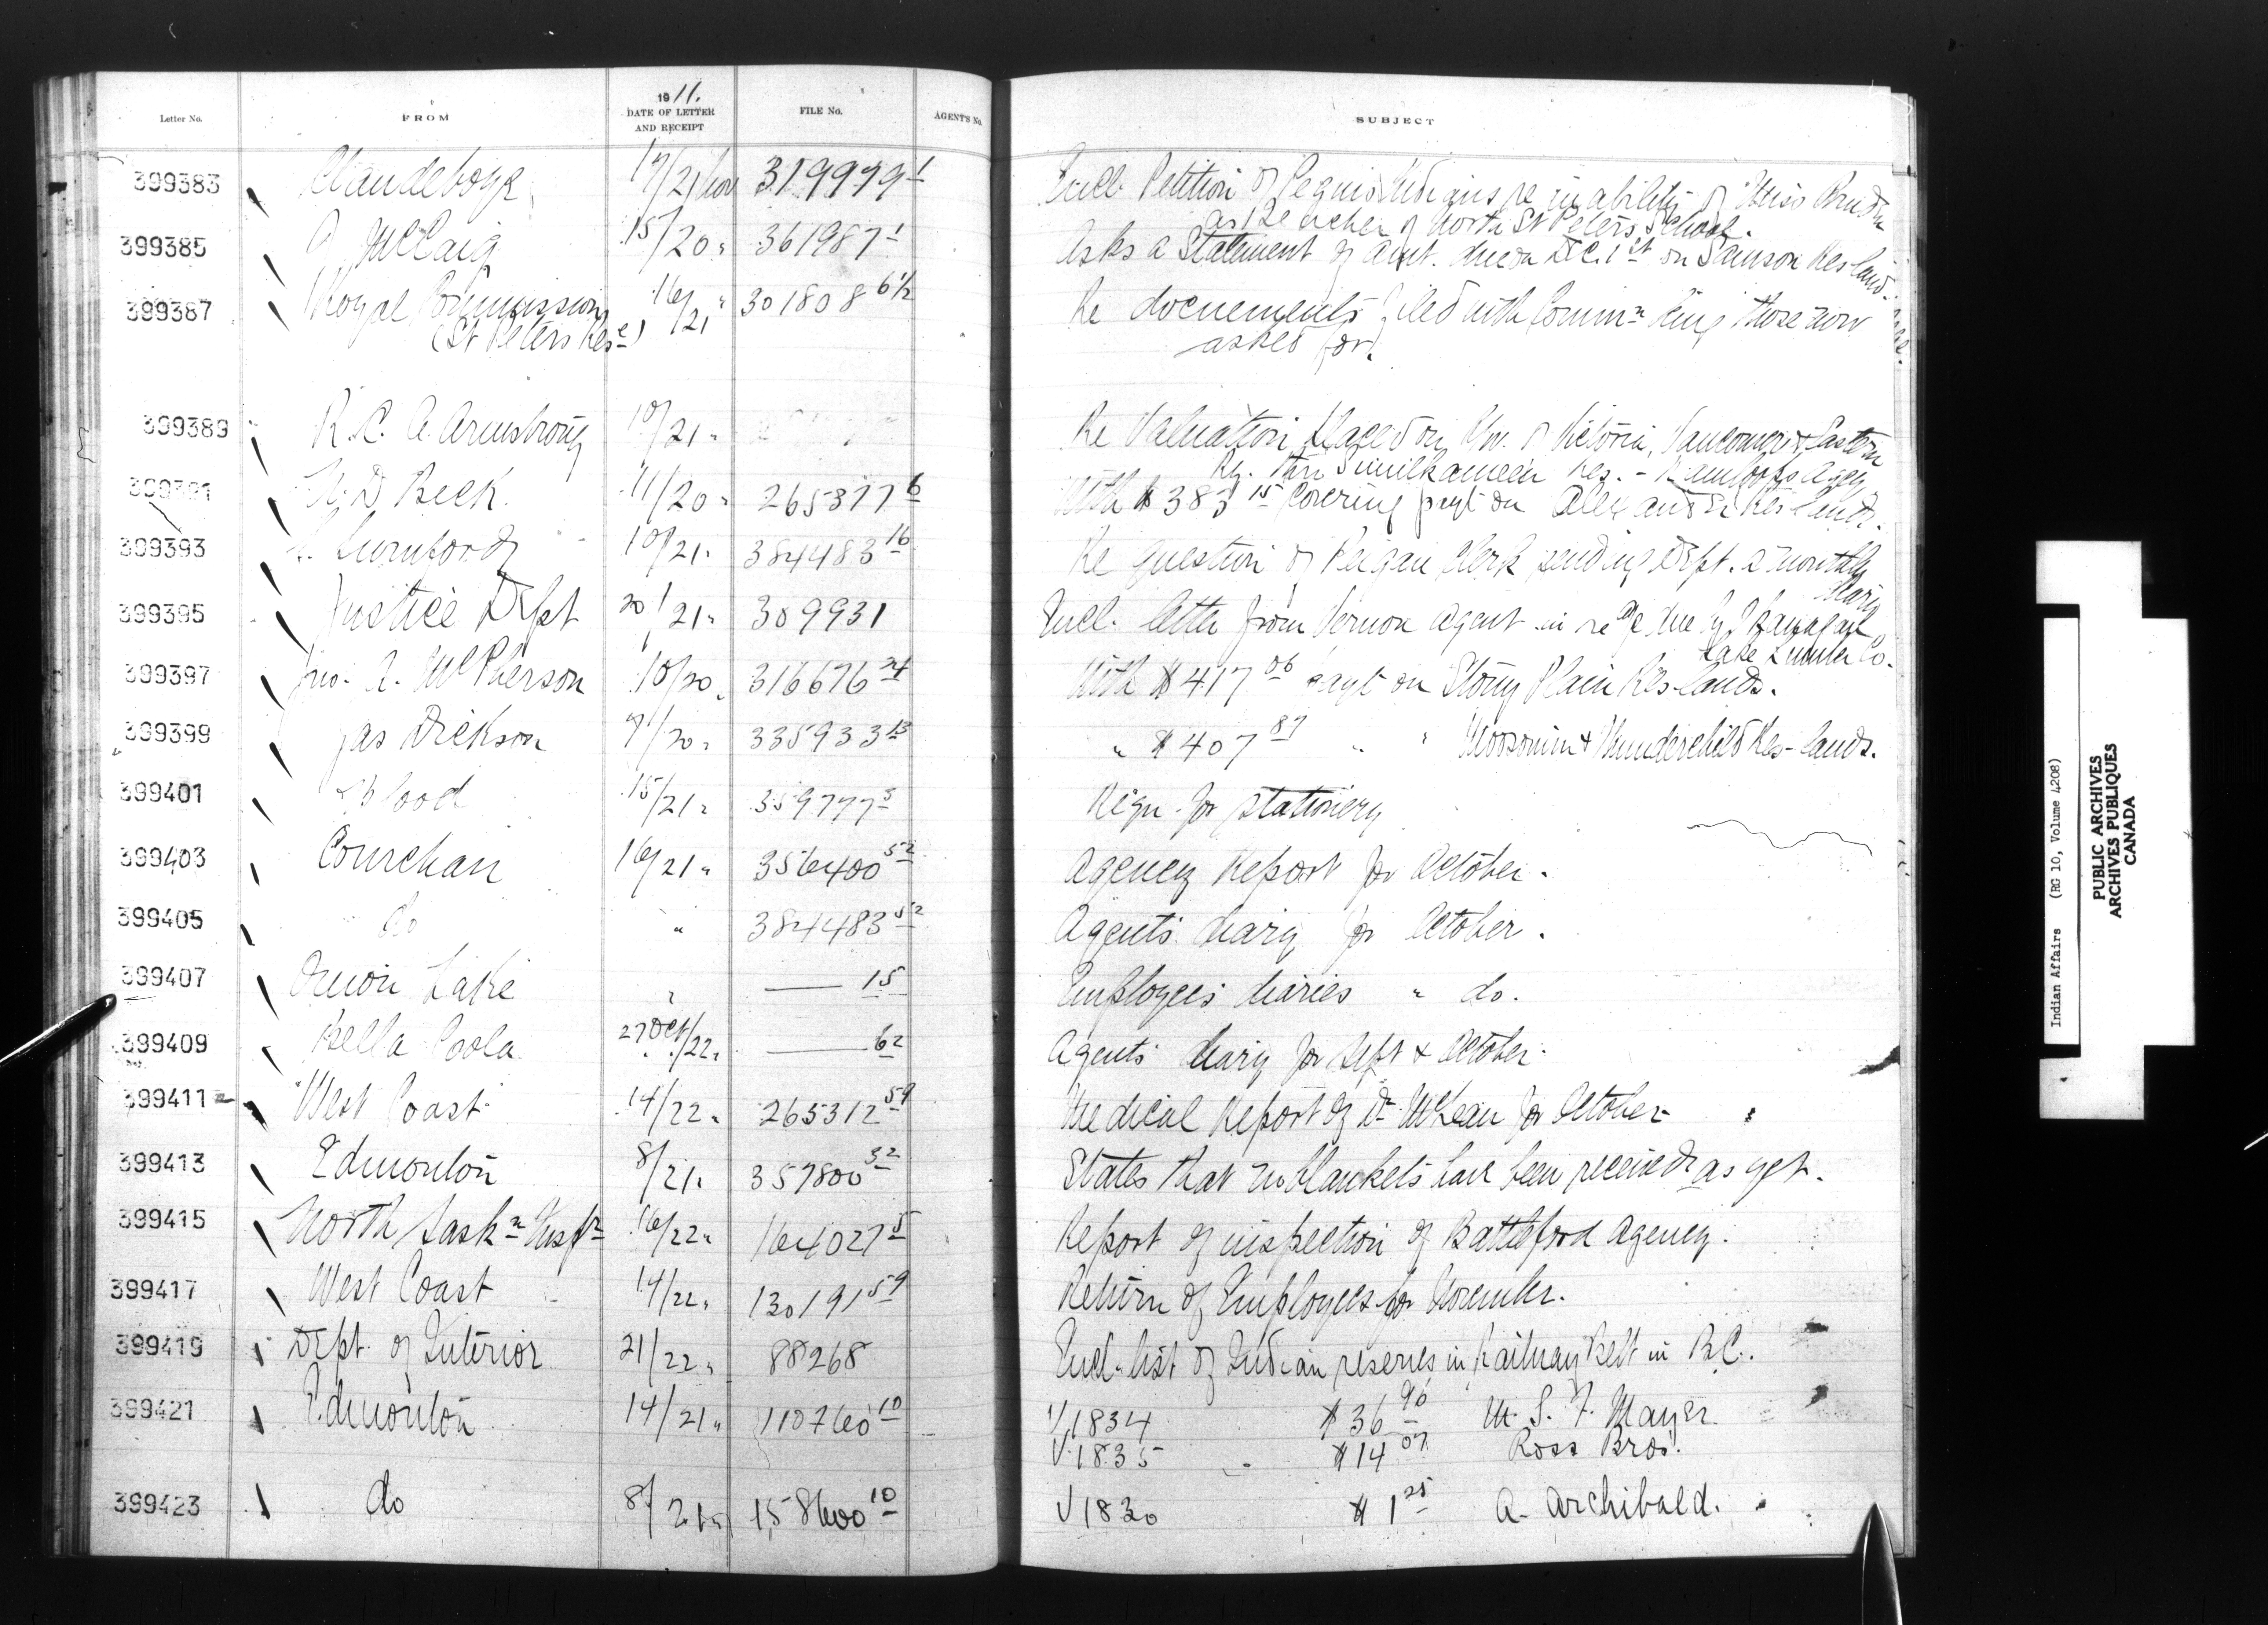 Letter No. FROM 1911. DATE OF LETTER AND RECEIPT FILE No. AGENT'S No. SUBJECT
399383 Clandeboye 17/21 Nov 319979 1 Encl. Petition of Peguis Indians re inability of Miss
as teacher of North St Peters School.
399385 McCaig 15/20 " 361987 1 Asks a Statement of amt. due on Dec. 1st on Samson Res land.
399387 Royal Commission 16/21 " 301808 6½ Re documents filed with Commn being those now
(St Peters Rese) asked for.
399389 R. C. A. Armstrong 10/21 " Re Valuation placed on of Victoria, Vancouver & Eastern
Ry. thro Similkameen Res. - Kamloops Agey
399391 N. D Beck. 11/20 " 265377 6 With $383 15 Covering payt on Alexander Res lands.
399393 10/21 " 384483 16 Re question of Peigan Clerk sending Dept. a monthly
diary
399395 Justice Dept 20/21 " 309931 Encl. letter from Vernon agent in re a/c due by Okanagan
Lake Lumber Co.
399397 Jno. A. McPherson 10/20 " 316676 24 With $417 06 payt on Stony Plain Res-lands.
399399 Jas Dickson 9/20 " 335933 13 " $407 87 " " Moosomin & Thunderchild Res-lands.
399401 Blood 15/21 " 359777 3 Reqn. for stationery
399403 Cowichan 16/21 " 356400 52 Agency Report for October.
399405 do " 384483 52 Agents diary for October.
399407 Onion Lake " —— 15 Employees diaries " do.
399409 Bella Coola 27 Oct/22 " —— 62 Agents diary for Sept & October.
399411 West Coast 14/22 " 265312 59 Medical Report of Dr McLean for October
399413 Edmonton 8/21 " 357800 32 States that no blankets have been received as yet.
399415 North Saskn Inspn 16/22 " 164027 5 Report of inspection of Battleford Agency.
399417 West Coast 14/22 " 130191 59 Return of Employees for November.
399419 Dept. of Interior 21/22 " 88268 Encl. list of Indian reserves in Railway Belt in B.C.
399421 Edmonton 14/21 " 110760 10 V1834 $36 90 M. S. F. Mayer
V1835 $14 07 Ross Bros.
399423 do 8/21 " 158600 10 V1830 $1 25 A. Archibald.
Indian Affairs (RG 10, Volume 4208)
PUBLIC ARCHIVES
ARCHIVES PUBLIQUES
CANADA